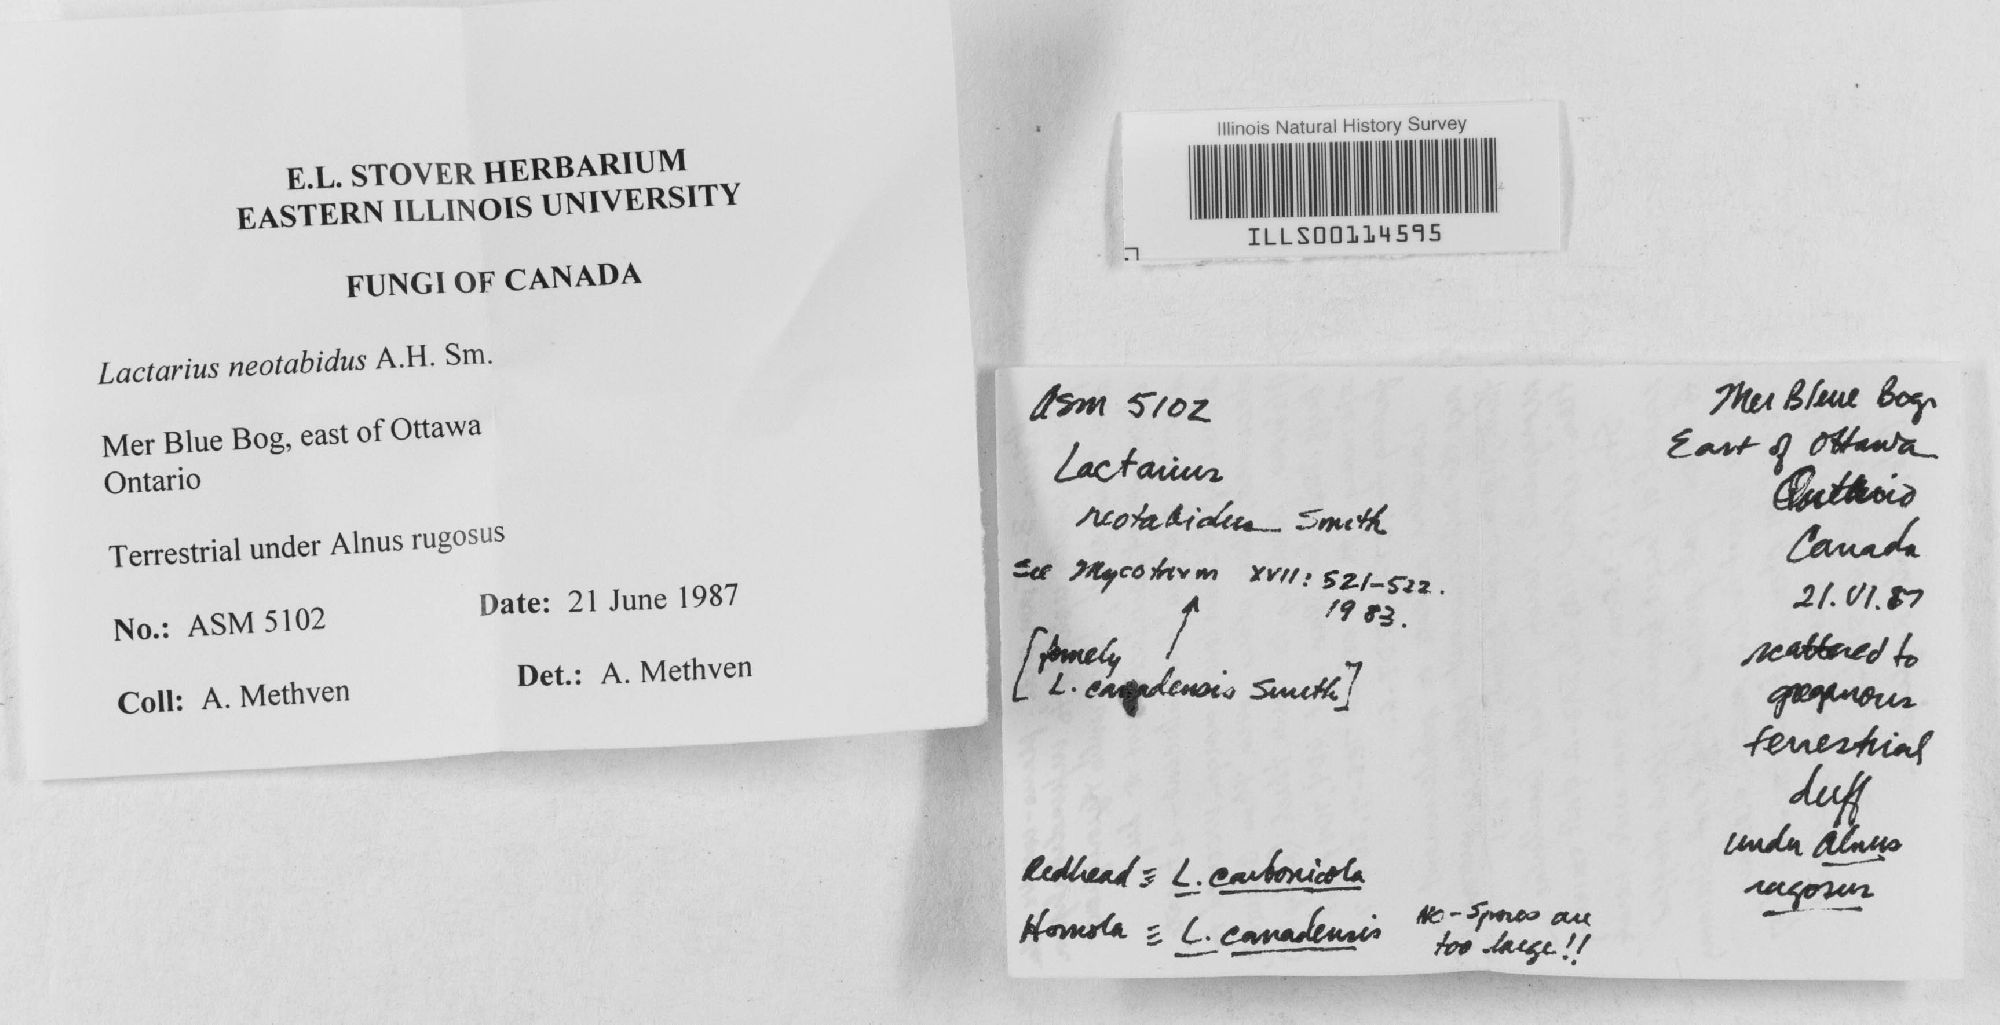 E.L. STOVER HERBARIUM
EASTERN ILLINOIS UNIVERSITY
FUNGI OF CANADA
Lactarius neotabidus A.H. Sm.
Mer Blue Bog, east of Ottawa
Ontario
Terrestrial under Alnus rugosus
No.: ASM 5102 Date: 21 June 1987
Coll: A. Methven Det.: A. Methven
Illinois Natural History Survey
ILLS00114595
ASM 5102
Lactarius
neotabidus Smith
See Mycotaxon XVII: 521-522.
1983.
[formely
L. canadensis Smith]
Redhead ≡ L. carbonicola
Homola ≡ L. canadensis
No - Spores are
too large!!
Mer Bleue Bog
East of Ottawa
Ontario
Canada
21.VI.87
scattered to
gregarious
terrestrial
duff
under Alnus
rugosus